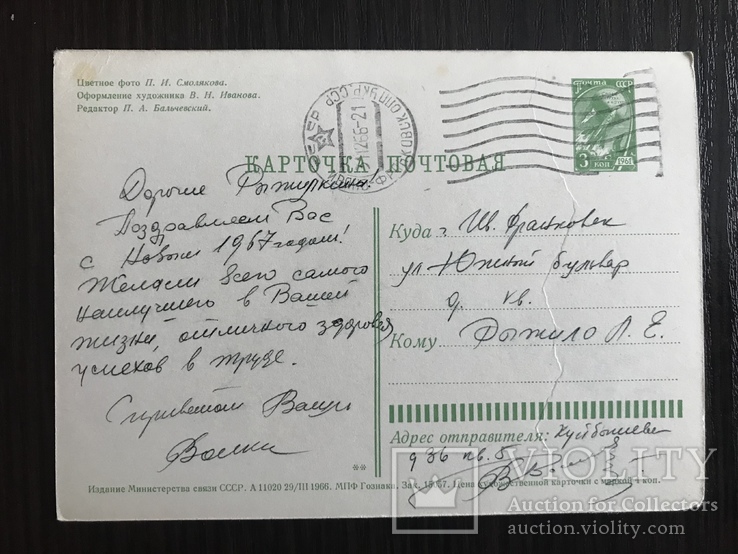 Цветное фото П. И. Смолякова.
Оформление художника В. Н. Иванова.
Редактор П. А. Бальчевский.
ПОЧТА СССР
3 КОП
1961
КАРТОЧКА ПОЧТОВАЯ
Дорогие Рыжилкины!
Поздравляем Вас
с Новым 1967 годом!
Желаем всего самого
наилучшего в Вашей
жизни, отличного здоровья
успехов в труде.
С приветом Ваши
Куда г. Ив. Франковск
ул Южный бульвар
д. кв.
Кому Рыжило Л. Е.
Адрес отправителя: Куйбышева
д 36 кв. 5
**
Издание Министерства связи СССР. А 11020 29/III 1966. МПФ Гознака. Зак. 1567. Цена художественной карточки с маркой 4 коп.
VIOLITY
Auction for Collectors
auction.violity.com